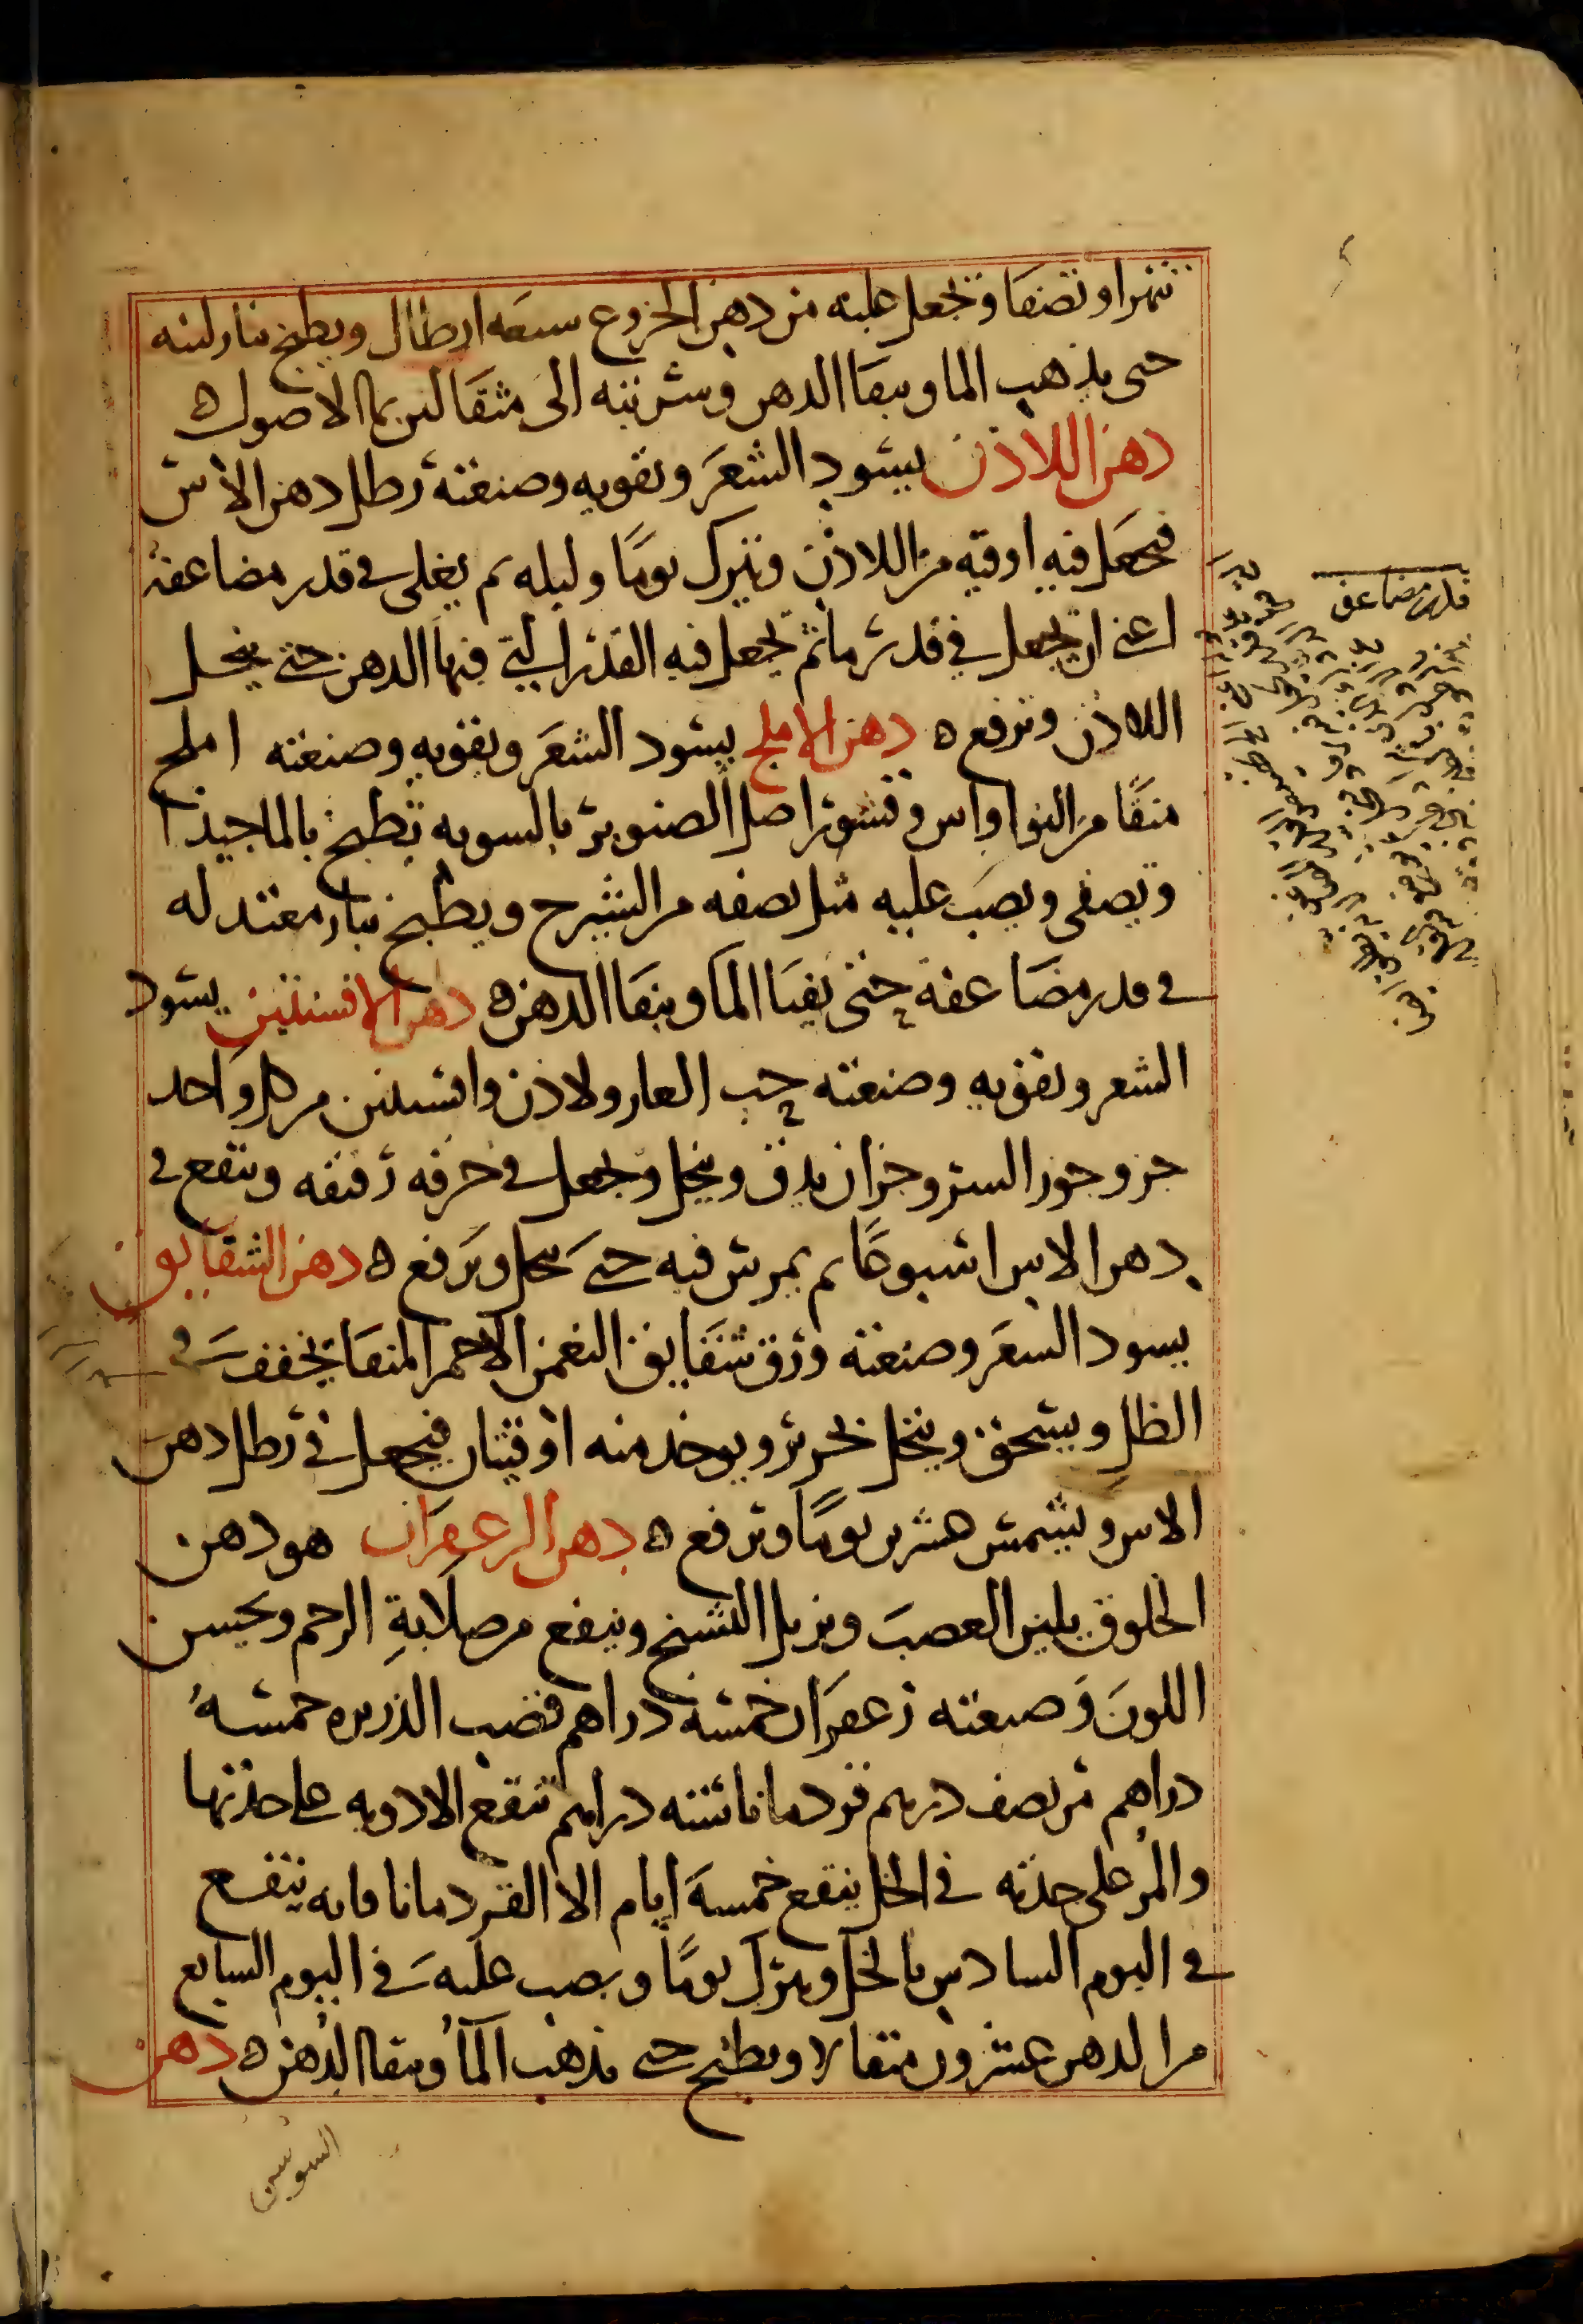 تمرا ونصفا ونجعل عليه من دهن الخروع سبعه ارطال ويطبخ بنار لينه
حتى يذهب الما ويبقا الدهن وشربته الى مثقالين بما الاصول ه
دهن اللاذن يسود الشعر ونقويه وصنعته رطل دهن الاس
فيجعل فيه اوقيه من اللاذن ويترك يوما وليله ثم يغلى في قدر مضاعفه
اعني ان يجعل في قدر ما ثم يجعل فيه القدر التي فيها الدهن حتى ينحل
اللاذن ويرفع ه دهن الاملج يسود الشعر ويقويه وصنعته املج
منقا من النوا واس وقشور اصل الصنوبر بالسويه تطبخ بالما جيدا
ويصفى ويصب عليه مثل نصفه من الشيرج ويطبخ بنار معتدله
في قدر مضاعفة حتى يفنا الما ويبقا الدهن ه دهن الافسنتين يسود
الشعر ويقويه وصنعته حب الغار ولاذن وافسنتين من كل واحد
جزو جوز السرو جزان يدق وينخل ويجعل في خرقه رقيقه وينقع في
دهن الاس اسبوعا ثم يمرس فيه حتى ينحل ويرفع ه دهن الشقايق
يسود الشعر وصنعته ورق شقايق النعمن الاحمر المنقا يجفف في
الظل ويسحق وينخل بحرير ويوخد منه اوقيتان فيجعل في رطل دهن
الاس ويشمس عشرين يوما ويرفع ه دهن الزعفران هو دهن
الخلوق يلين العصب ويزيل التشنج وينفع من صلابة الرحم ويحسن
اللون وصنعته زعفران خمسة دراهم قصب الذريره خمسة
دراهم مر نصف درهم قردمانا ستة دراهم تنقع الادويه على حدتها
والمر على حدته في الخل ينقع خمسة ايام الا القردمانا فانه ينقع
في اليوم السادس بالخل ويترك يوما ويصب عليه في اليوم السابع
من الدهن عشرون مثقالا ويطبخ حتى يذهب الما ويبقا الدهن ه دهن
السوسن
قدر مضاعف